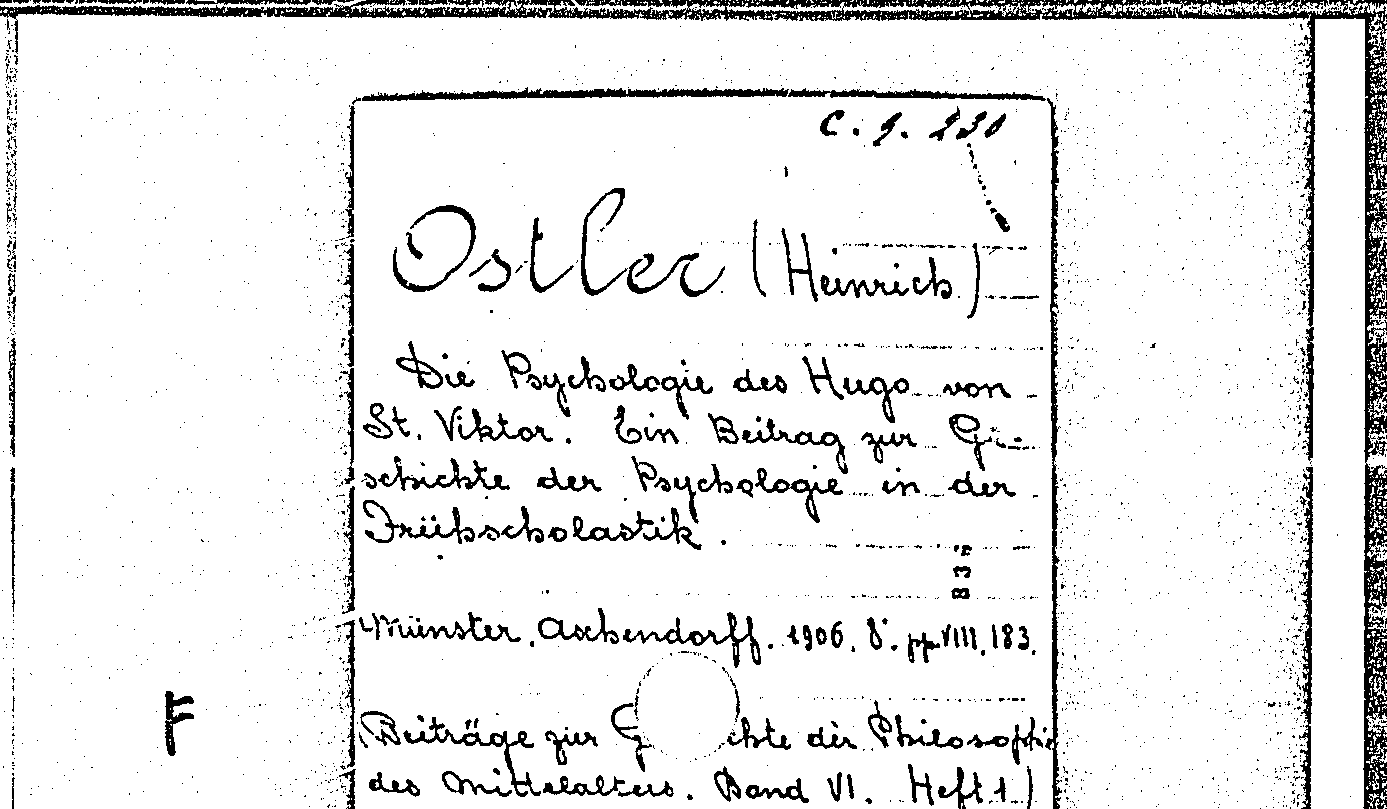 C. 9. 230
Ostler (Heinrich)
Die Psychologie des Hugo von
St. Viktor. Ein Beitrag zur Ge-
schichte der Psychologie in der
Frühscholastik.
Münster, Aschendorff. 1906. 8°. pp. VIII, 183.
Beiträge zur G chte der Philosophie
des Mittelalters. Band VI. Heft 1)
F